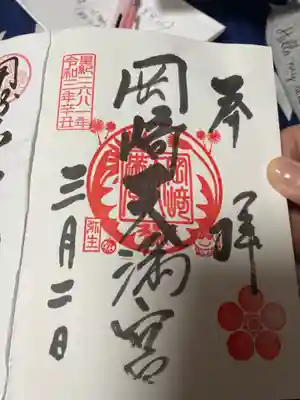 奉拝
岡崎天満宮
岡崎
皇紀二六八一年
令和三年辛丑
三月二日
弥生
Hello my